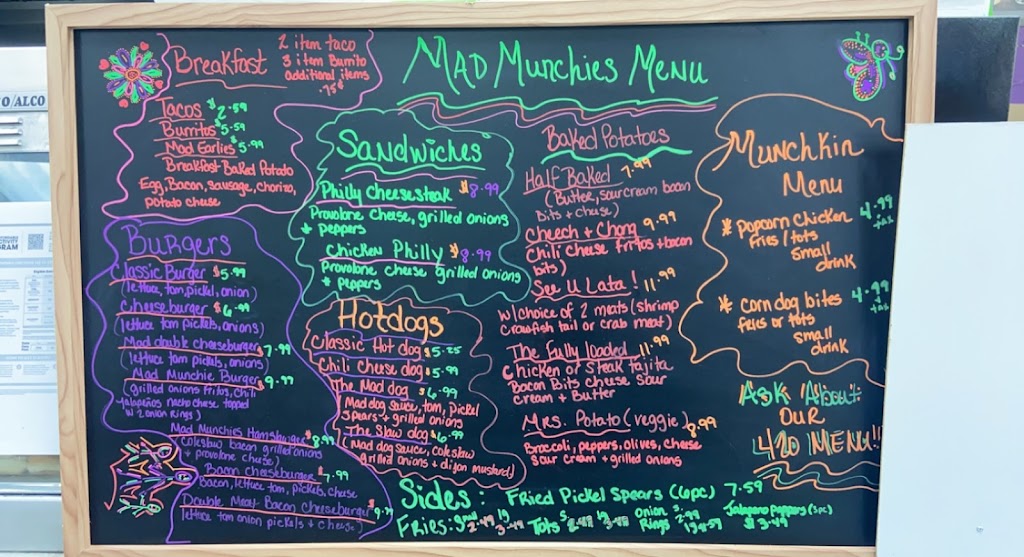 Mad Munchies Menu
Breakfast
2 item taco
3 item Burrito
additional items
.75¢
Tacos $2.59
Burritos $5.59
Mad Earlies $5.99
Breakfast Baked Potato
Egg, Bacon, sausage, chorizo,
potato cheese
Burgers
Classic Burger $5.99
(lettuce, tom, pickel, onion)
Cheeseburger $6.99
(lettuce tom pickels, onions)
Mad double cheeseburger $7.99
(lettuce tom pickels, onions)
Mad Munchie Burger $9.99
(grilled onions fritos, chili
Jalapeños nacho cheese topped
w/2 onion rings)
Mad Munchies Hamslawger $8.99
(coleslaw bacon grilled onions
+ provolone cheese)
Bacon cheeseburger $7.99
Bacon, lettuce, tom, pickels, cheese
Double Meat Bacon Cheeseburger $9.99
(lettuce tom onion pickels + cheese)
Sandwiches
Philly cheesesteak $8.99
Provolone cheese, grilled onions
+ peppers
Chicken Philly $8.99
Provolone cheese grilled onions
+ peppers
Hotdogs
Classic Hot dog $5.25
Chili cheese dog $5.99
The Mad dog $6.99
(Mad dog sauce, tom, pickel
spears + grilled onions
The Slaw dog $6.99
(Mad dog sauce, coleslaw
grilled onions + dijon mustard)
Baked Potatoes
Half Baked 7.99
(Butter, sour cream bacon
bits + cheese)
Cheech + Chong 9.99
Chili Cheese fritos + bacon
bits)
See u Lata! 11.99
w/choice of 2 meats (shrimp
crawfish tail or crab meat)
The Fully loaded 11.99
Chicken or Steak fajita
Bacon Bits cheese sour
cream + Butter
Mrs. Potato (veggie) 8.99
Broccoli, peppers, olives, cheese
sour cream + grilled onions
Munchkin
Menu
* popcorn chicken 4.99
fries / tots + tax
small
drink
* corn dog bites 4.99
fries or tots + tax
small
drink
Ask About
our
420 MENU!!
Sides: Fried Pickel Spears (6pc) 7.59
Fries: sml 2.49 lg 3.49 Tots lg Onion Rings Jalapeno Poppers (3pc) $3.49